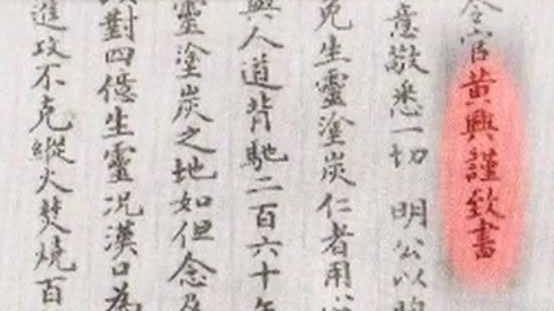 令官黃興謹致書
意敬悉一切 明公以
免生靈塗炭仁者用心
與人道背馳二百六十年
靈塗炭之地如但念及
對四億生靈况漢口為
進攻不克縱火焚燒百